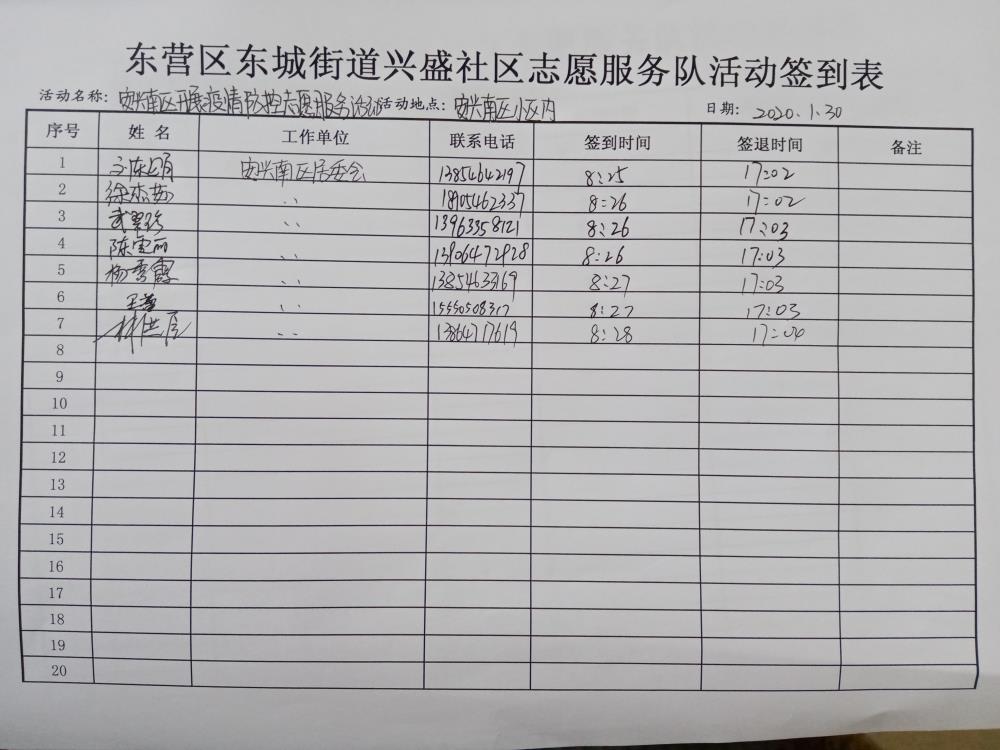 东营区东城街道兴盛社区志愿服务队活动签到表
活动名称：安兴南区开展疫情防控志愿服务活动 活动地点：安兴南区小区内 日期：2020.1.30
序号 姓名 工作单位 联系电话 签到时间 签退时间 备注
1 安兴南区居委会 13854642197 8:25 17:02
2 徐杰茹 〃 18905462337 8:26 17:02
3 武翠珍 〃 13963358121 8:26 17:03
4 陈雪丽 〃 13906472928 8:26 17:03
5 杨秀霞 〃 13854633169 8:27 17:03
6 〃 15550508317 8:27 17:03
7 〃 13864717619 8:28 17:04
8
9
10
11
12
13
14
15
16
17
18
19
20